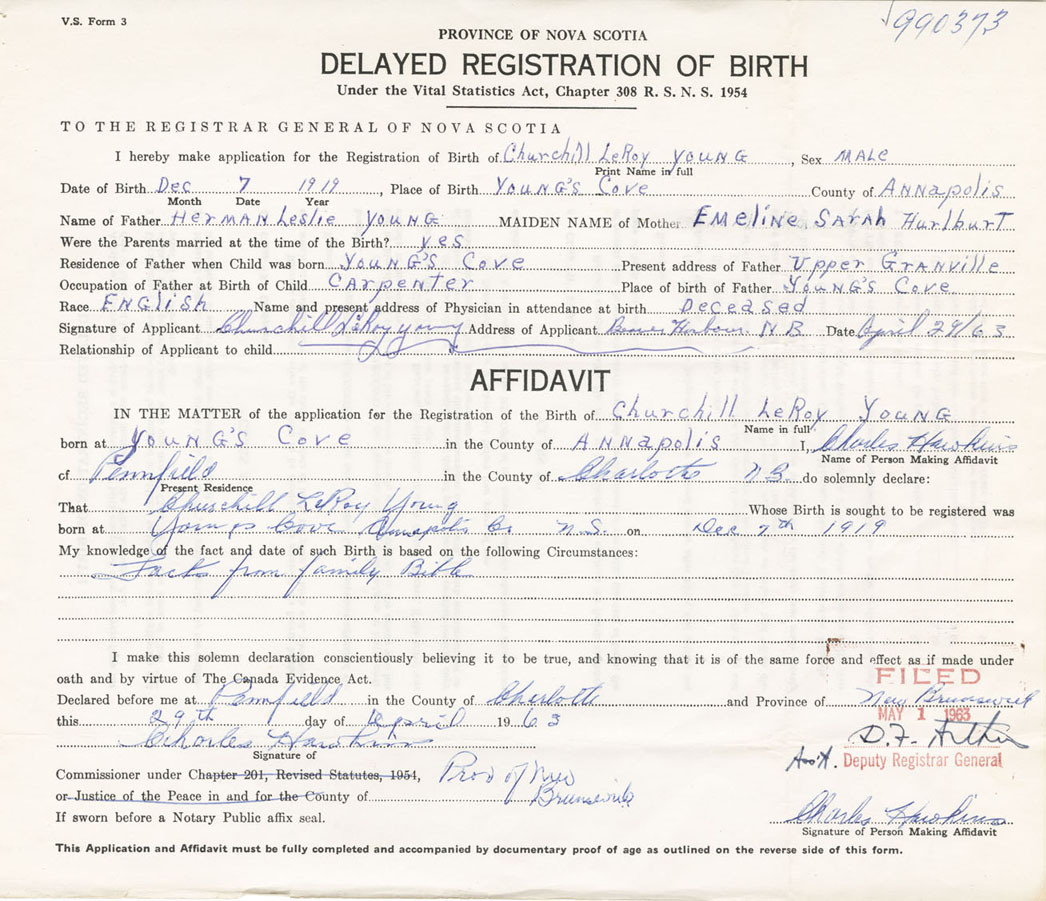 V.S. Form 3
990373
PROVINCE OF NOVA SCOTIA
DELAYED REGISTRATION OF BIRTH
Under the Vital Statistics Act, Chapter 308 R. S. N. S. 1954
TO THE REGISTRAR GENERAL OF NOVA SCOTIA
I hereby make application for the Registration of Birth of Churchill LeRoy Young, Sex MALE
Print Name in full
Date of Birth Dec 7 1919, Place of Birth Young's Cove County of Annapolis
Month Date Year
Name of Father Herman Leslie Young MAIDEN NAME of Mother Emeline Sarah Hurlburt
Were the Parents married at the time of the Birth? yes
Residence of Father when Child was born Young's Cove Present address of Father Upper Granville
Occupation of Father at Birth of Child Carpenter Place of birth of Father Young's Cove
Race English Name and present address of Physician in attendance at birth Deceased
Signature of Applicant Churchill LeRoy Young Address of Applicant Beaver Harbour NB Date April 29/63
Relationship of Applicant to child
AFFIDAVIT
IN THE MATTER of the application for the Registration of the Birth of Churchill LeRoy Young
Name in full
born at Young's Cove in the County of Annapolis I, Charles Hawkins
Name of Person Making Affidavit
of Pennfield in the County of Charlotte N.B. do solemnly declare:
Present Residence
That Churchill LeRoy Young Whose Birth is sought to be registered was
born at Youngs Cove Annapolis Co N.S. on Dec 7th 1919
My knowledge of the fact and date of such Birth is based on the following Circumstances:
Facts from family Bible
I make this solemn declaration conscientiously believing it to be true, and knowing that it is of the same force and effect as if made under
oath and by virtue of The Canada Evidence Act.
FILED
Declared before me at Pennfield in the County of Charlotte and Province of New Brunswick
this 29th day of April 1963
MAY 1 1963
Charles Hawkins
D.F.
Signature of
Asst. Deputy Registrar General
Commissioner under Chapter 201, Revised Statutes, 1954, Prov of New
or Justice of the Peace in and for the County of Brunswick
If sworn before a Notary Public affix seal.
Charles Hawkins
Signature of Person Making Affidavit
This Application and Affidavit must be fully completed and accompanied by documentary proof of age as outlined on the reverse side of this form.